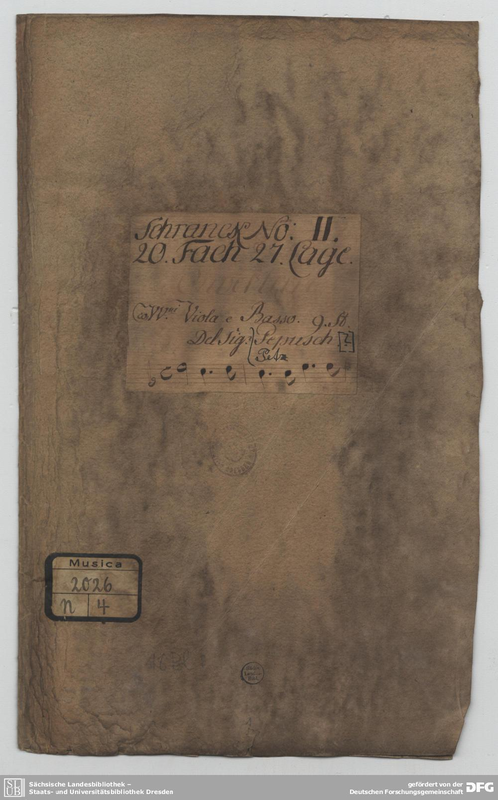 Schranck No: II.
20. Fach 27. Lage.
VV.ni Viola e Basso. 9. St.
Del Sig. Pepusch [?]
Petz
Musica
2026
n 4
SLUB
Sächsische Landesbibliothek –
Staats- und Universitätsbibliothek Dresden
gefördert von der
Deutschen Forschungsgemeinschaft
DFG